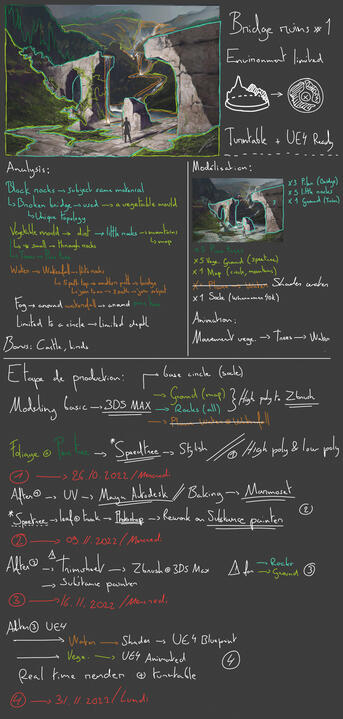 Bridge ruins #1
Environment limited
Turntable + UE4 Ready
Analysis:
Block rocks → subject same material
↳ Broken bridge → used → a vegetable mould
↳ Unique topology
Vegetable mould → dirt → little rocks → mountains
↳ map
↳ small → through rocks
↳ Trees → Pine tree
Water → Waterfall → little rocks
Fog → around waterfall → around pine tree
Limited to a circle → limited depth
Bonus: Castle, birds
Modélisation:
x3 Pilar (Bridge)
x5 little rocks
x1 Ground (Terrain)
x5 Vege. Ground (speedtree)
x1 Map (circle, mountains)
Shaders water
x1 Scale (humain 190k)
Animation:
Mouvement vege. → Trees → Water
Etape de production:
→ base circle (scale)
→ Ground (map)
Modeling basic → 3DS MAX → Rocks (all)
High poly to Zbrush
→ Plane Water & Waterfall
Foliage @ Pine tree → *Speedtree → Stylish // ① High poly & low poly
① → 26.10.2022 / Mercredi
After ① → UV → Maya Autodesk // Baking → Marmoset
②
*Speedtree → leaf @ trunk → Photoshop → Rework on Substance painter
② → 09.11.2022 / Mercredi
After ② → Trimsheet → Zbrush @ 3DS Max
Δ for → Rocks
→ Ground
③
→ Substance painter
③ → 16.11.2022 / Mercredi
After ③ UE4
→ Water → Shader → UE4 Blueprint
→ Vege. → UE4 Animated
④
Real time render @ turntable
④ → 31.11.2022 / Lundi